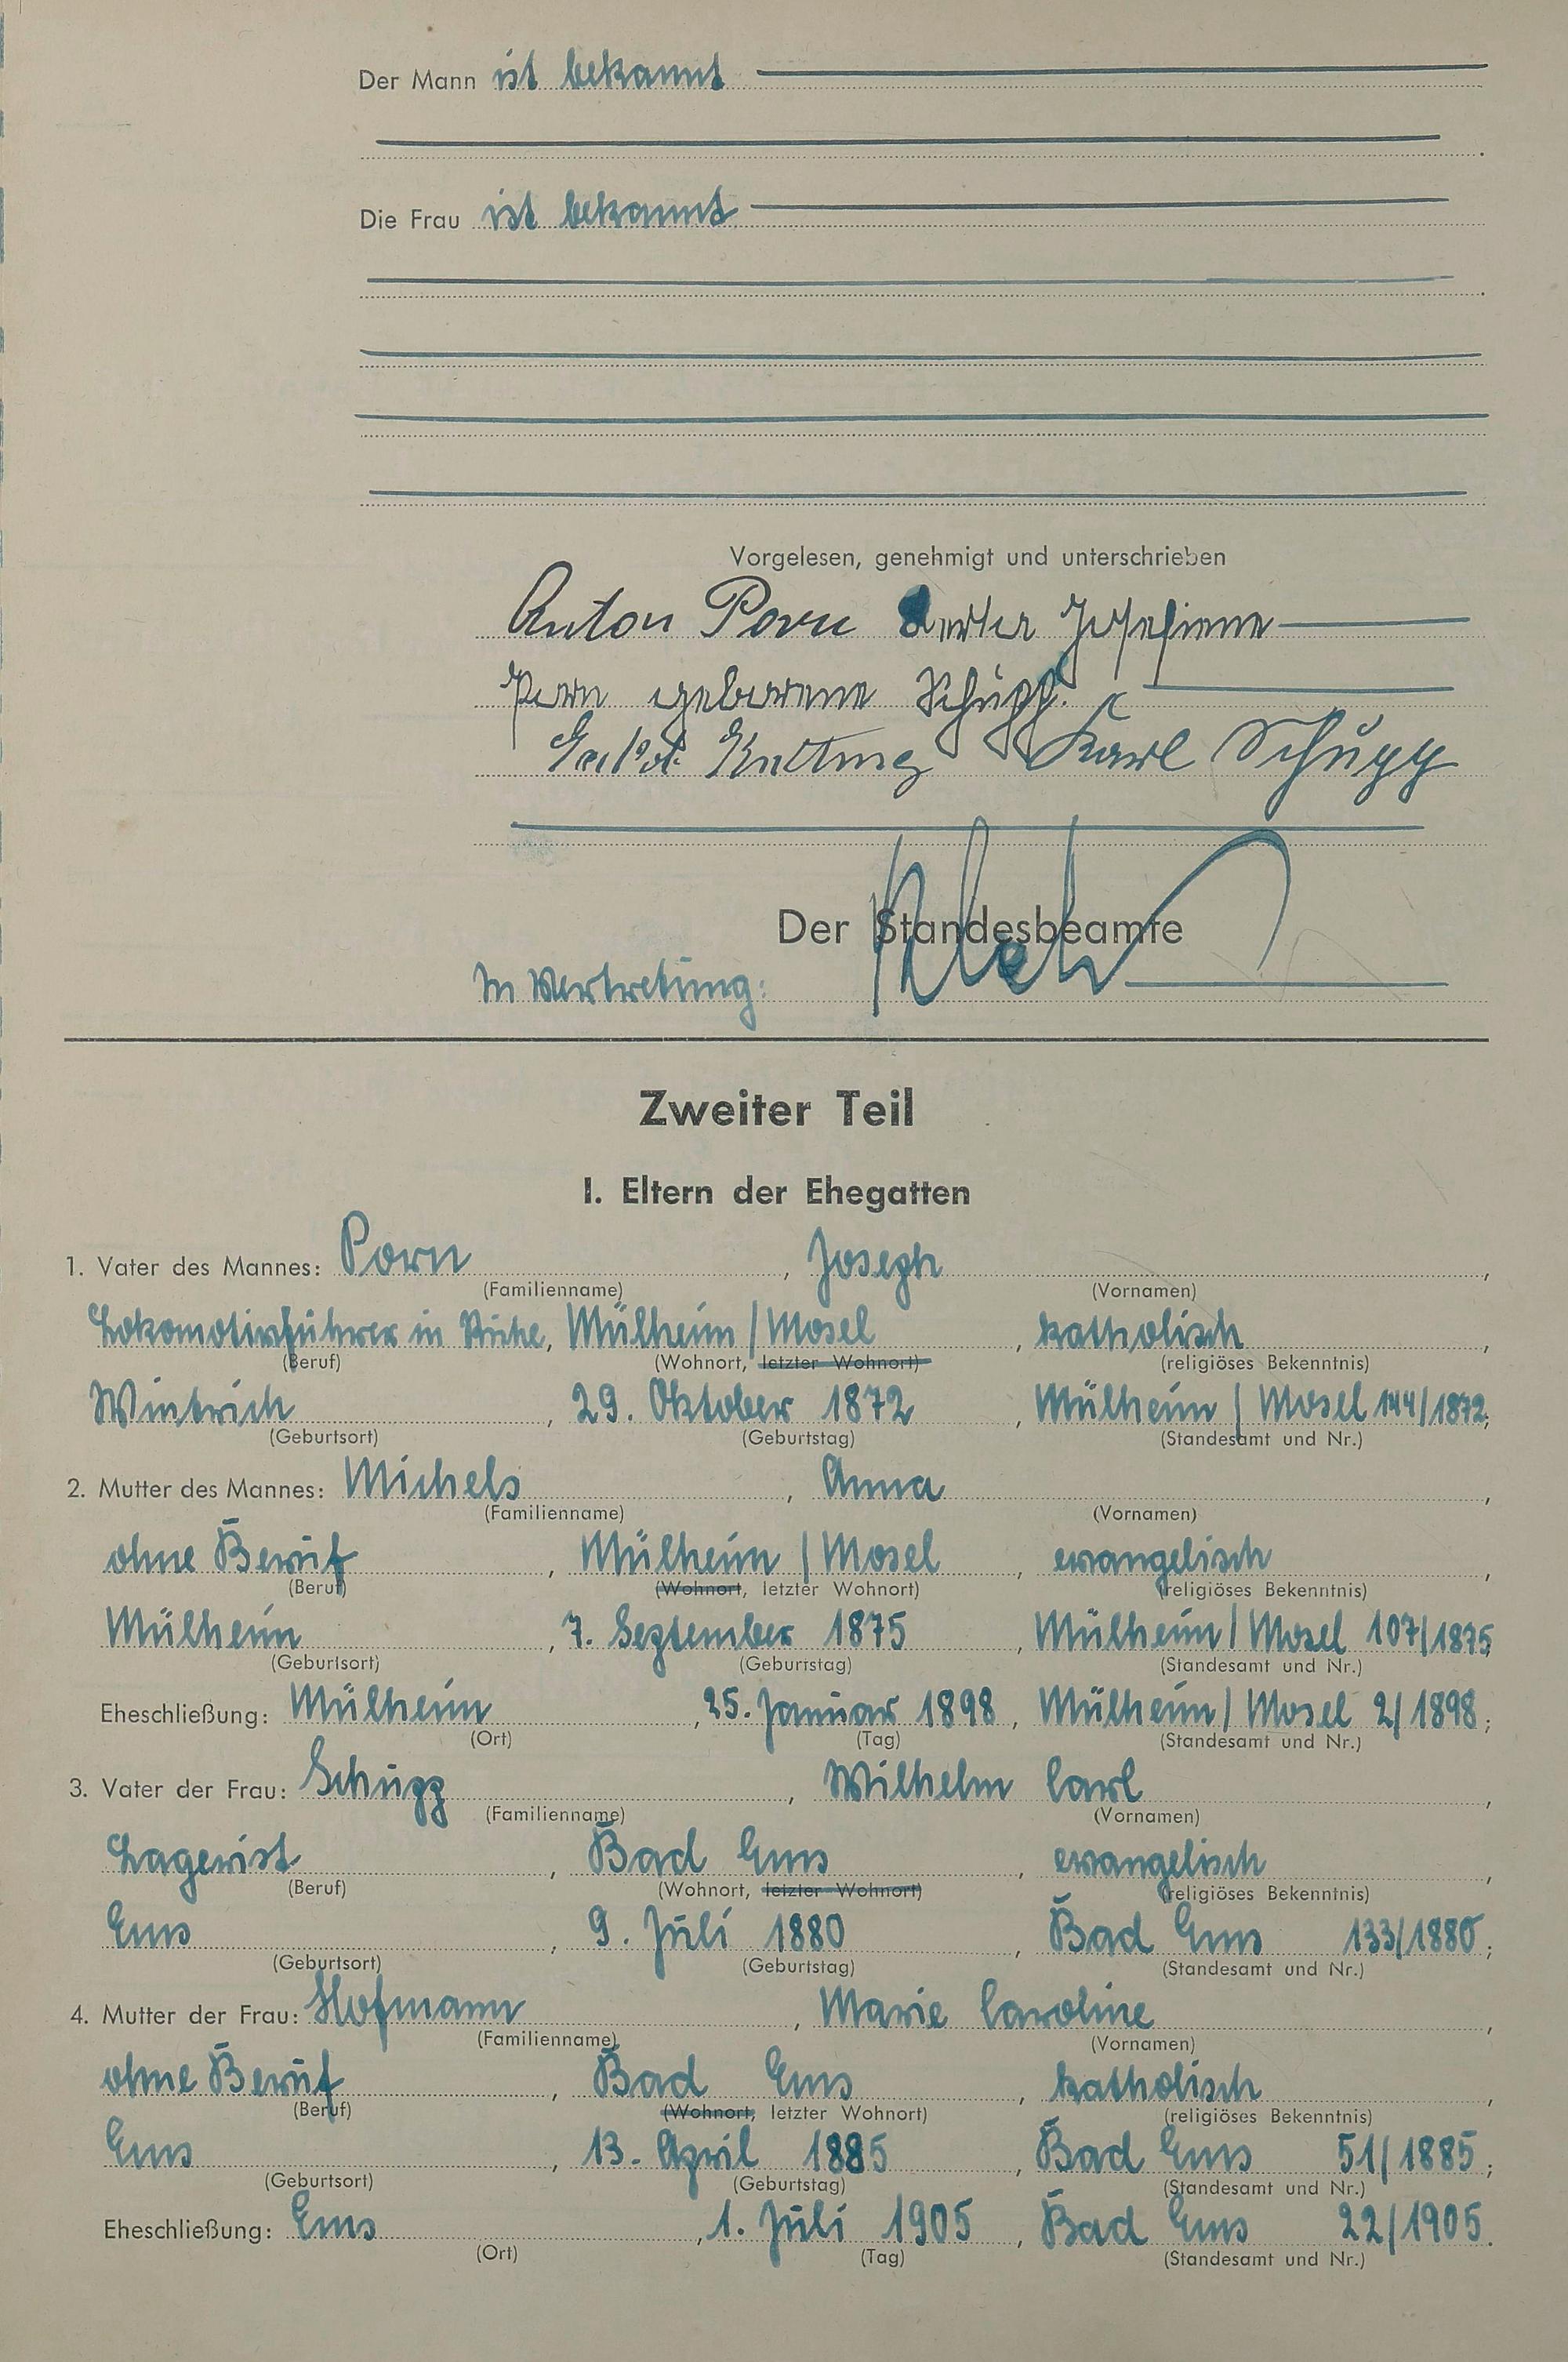 Der Mann ist bekannt
Die Frau ist bekannt
Vorgelesen, genehmigt und unterschrieben
Anton Porn Josefiene
Porn geborene Schupp.
Karl Schupp
Der Standesbeamte
In Vertretung:
Zweiter Teil
I. Eltern der Ehegatten
1. Vater des Mannes: Porn, Joseph,
(Familienname) (Vornamen)
Lokomotivführer in Ruhe, Mülheim / Mosel, katholisch,
(Beruf) (Wohnort, letzter Wohnort) (religiöses Bekenntnis)
Wintrich, 29. Oktober 1872, Mülheim / Mosel 144/1872;
(Geburtsort) (Geburtstag) (Standesamt und Nr.)
2. Mutter des Mannes: Michels, Anna,
(Familienname) (Vornamen)
ohne Beruf, Mülheim / Mosel, evangelisch,
(Beruf) (Wohnort, letzter Wohnort) (religiöses Bekenntnis)
Mülheim, 7. September 1875, Mülheim / Mosel 107/1875;
(Geburtsort) (Geburtstag) (Standesamt und Nr.)
Eheschließung: Mülheim, 25. Januar 1898, Mülheim / Mosel 2/1898;
(Ort) (Tag) (Standesamt und Nr.)
3. Vater der Frau: Schupp, Wilhelm Carl,
(Familienname) (Vornamen)
Lagerist, Bad Ems, evangelisch,
(Beruf) (Wohnort, letzter Wohnort) (religiöses Bekenntnis)
Ems, 9. Juli 1880, Bad Ems 133/1880;
(Geburtsort) (Geburtstag) (Standesamt und Nr.)
4. Mutter der Frau: Hofmann, Marie Caroline,
(Familienname) (Vornamen)
ohne Beruf, Bad Ems, katholisch,
(Beruf) (Wohnort, letzter Wohnort) (religiöses Bekenntnis)
Ems, 13. April 1885, Bad Ems 51/1885;
(Geburtsort) (Geburtstag) (Standesamt und Nr.)
Eheschließung: Ems, 1. Juli 1905, Bad Ems 22/1905.
(Ort) (Tag) (Standesamt und Nr.)